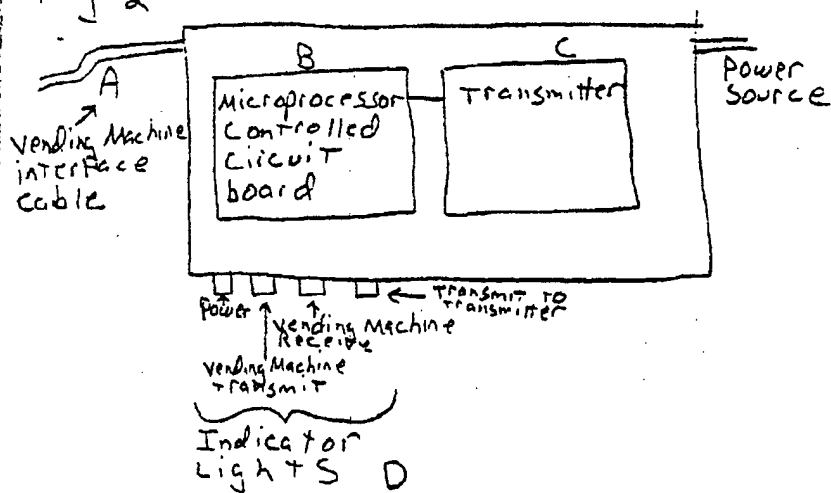 g 2
A
Vending Machine
interface
cable
B
Microprocessor
Controlled
Circuit
board
C
Transmitter
Power
Source
Power
Vending Machine
Transmit
Vending Machine
Receive
Transmit to
Transmitter
Indicator
Lights D